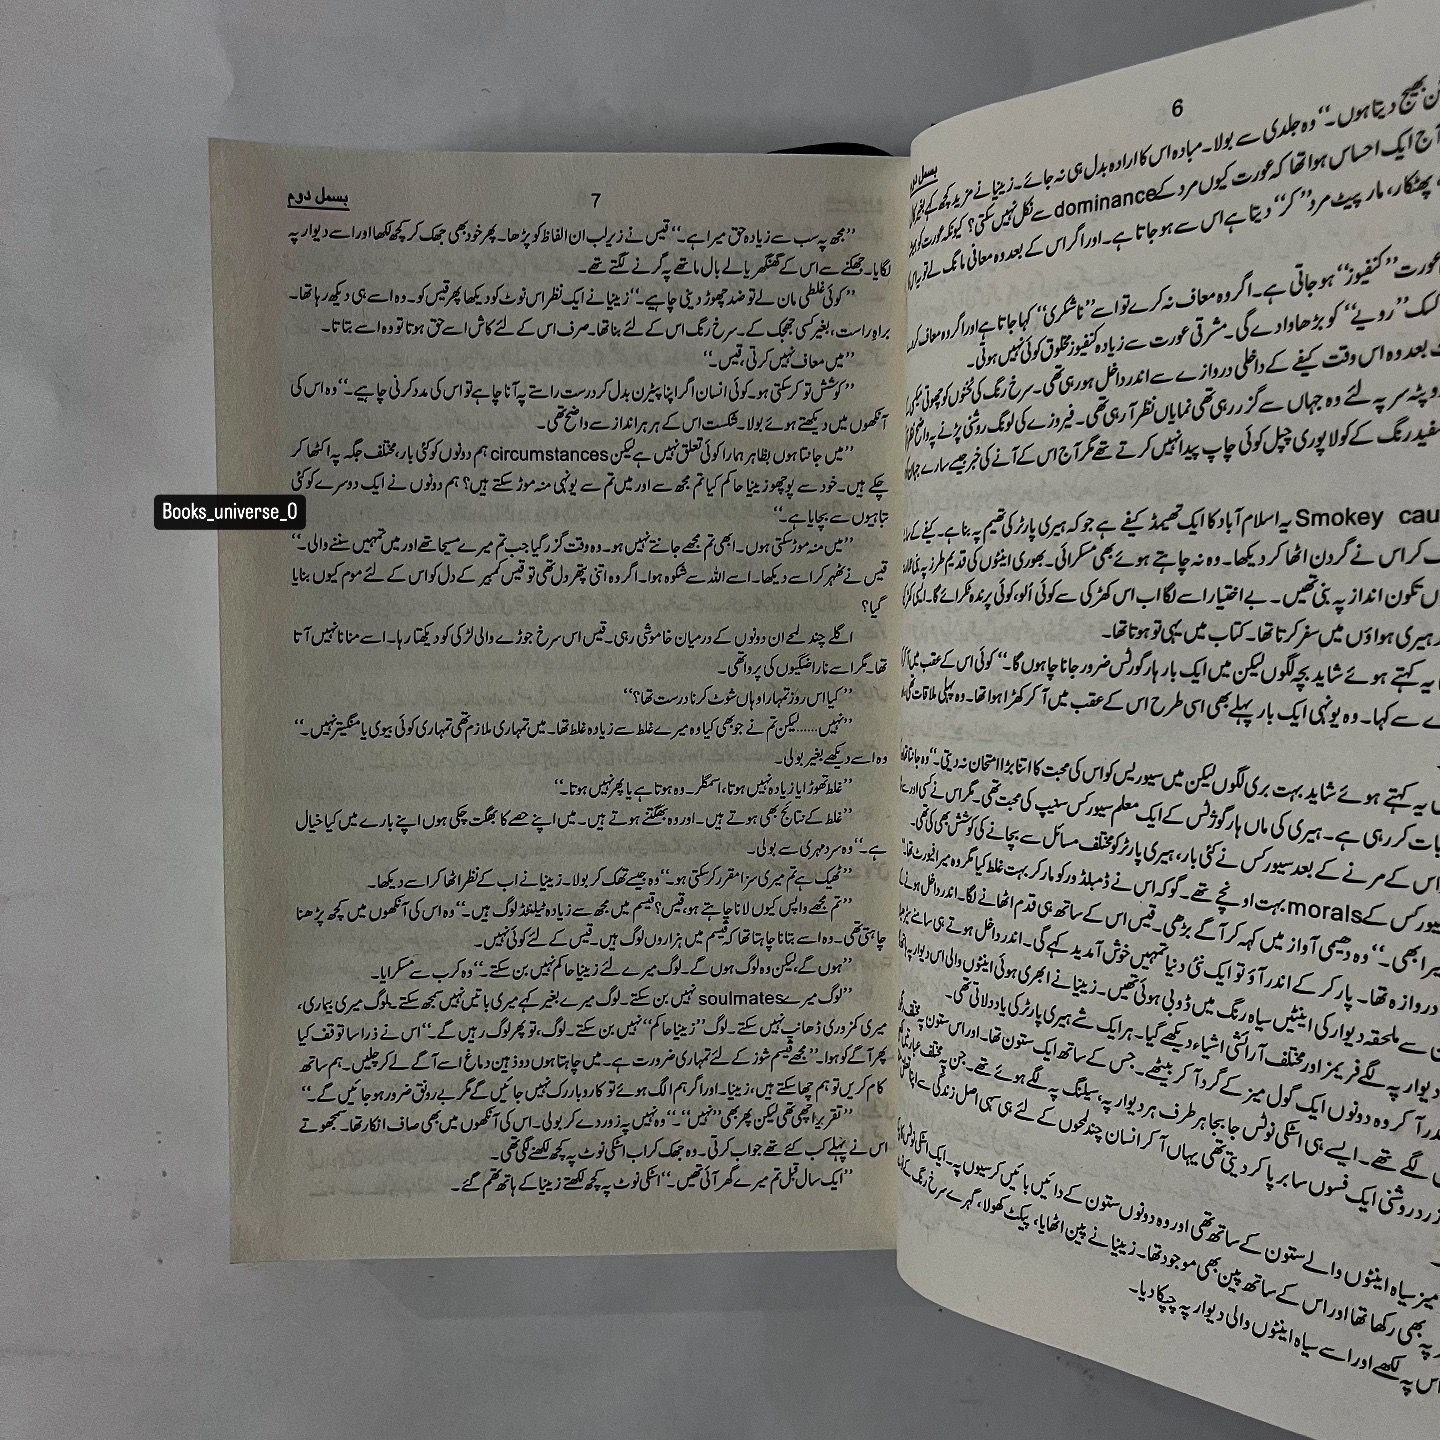 6
بسمل دوم
بھیج دیتا ہوں۔‘‘ وہ جلدی سے بولا۔ مبادہ اس کا ارادہ بدل ہی نہ جائے۔ زینیا نے مزید کچھ کہے بغیر
آج ایک احساس ہوا تھا کہ عورت کیوں مرد کے dominance سے نکل نہیں سکتی؟ کیونکہ عورت کو
پھٹکار، مار پیٹ مرد ’’کر‘‘ دیتا ہے اس سے ہو جاتا ہے۔ اور اگر اس کے بعد وہ معافی مانگ لے تو
عورت ’’کنفیوز‘‘ ہو جاتی ہے۔ اگر وہ معاف نہ کرے تو اسے ’’ناشکری‘‘ کہا جاتا ہے اور اگر وہ معاف کر
’’رویے‘‘ کو بڑھاوا دے گی۔ مشرقی عورت سے زیادہ کنفیوز مخلوق کوئی نہیں ہوتی۔
بعد وہ اس وقت کیفے کے داخلی دروازے سے اندر داخل ہو رہی تھی۔ سرخ رنگ کی ٹخنوں کو چھوتی
دوپٹہ سر پہ لئے وہ جہاں سے گزر رہی تھی نمایاں نظر آ رہی تھی۔ فیروزے کی لونگ روشنی پڑنے پہ واضح
سفید رنگ کے کولا پوری چپل کوئی چاپ پیدا نہیں کرتے تھے مگر آج اس کے آنے کی خبر جیسے سارے جہان
Smokey cau یہ اسلام آباد کا ایک تھیمڈ کیفے ہے جو کہ ہیری پارٹر کی تھیم پہ بنا ہے۔ کیفے کے
کر اس نے گردن اٹھا کر دیکھا۔ وہ نہ چاہتے ہوئے بھی مسکرائی۔ بھوری اینٹوں کی قدیم طرز پہ
تکون انداز پہ بنی تھیں۔ بے اختیار اسے لگا اب اس کھڑکی سے کوئی اُلو، کوئی پرندہ ٹکرائے گا۔
ہیری ہواؤں میں سفر کرتا تھا۔ کتاب میں یہی تو ہوتا تھا۔
یہ کہتے ہوئے شاید بچہ لگوں لیکن میں ایک بار ہارگورٹس ضرور جانا چاہوں گا۔‘‘ کوئی اس کے عقب میں
سے کہا۔ وہ یونہی ایک بار پہلے بھی اسی طرح اس کے عقب میں آ کر کھڑا ہوا تھا۔ وہ پہلی ملاقات تھی
یہ کہتے ہوئے شاید بہت بری لگوں لیکن میں سیوریس کو اس کی محبت کا اتنا بڑا امتحان نہ دیتی۔‘‘ وہ جانتا
بات کر رہی ہے۔ ہیری کی ماں ہارگوڑٹس کے ایک معلم سیورکس سنیپ کی محبت تھی۔ مگر اس نے کسی اور سے
اس کے مرنے کے بعد سیورکس نے کئی بار، ہیری پارٹر کو مختلف مسائل سے بچانے کی کوشش بھی کی تھی۔
سیورکس کے morals بہت اونچے تھے۔ گو کہ اس نے ڈمبلڈور کو مار کر بہت غلط کیا مگر وہ میرا فیورٹ تھا۔
میرا بھی۔‘‘ وہ دھیمی آواز میں کہہ کر آگے بڑھی۔ قیس اس کے ساتھ ہی قدم اٹھانے لگا۔ اندر داخل ہونے
دروازہ تھا۔ پار کر کے اندر آؤ تو ایک نئی دنیا تمہیں خوش آمدید کہے گی۔ اندر داخل ہوتے ہی سامنے
سے ملحقہ دیوار کی اینٹیں سیاہ رنگ میں ڈوبی ہوئی تھیں۔ زینیا نے ابھری ہوئی اینٹوں والی اس دیوار پہ
دیوار پہ لگے فریمز اور مختلف آرائشی اشیاء دیکھے گیا۔ ہر ایک شے ہیری پارٹر کی یاد دلاتی تھی۔
اندر آ کر وہ دونوں ایک گول میز کے گرد آ کر بیٹھے۔ جس کے ساتھ ایک ستون تھا۔ اور اس ستون پہ مختلف
لگے تھے۔ ایسے ہی اسٹکی نوٹس جا بجا ہر طرف ہر دیوار پہ، سیلنگ پہ لگے ہوئے تھے۔ جن پہ مختلف
زرد روشنی ایک فسوں سا برپا کر دیتی تھی یہاں آ کر انسان چند لمحوں کے لئے ہی سہی اصل زندگی سے اپنا
میز سیاہ اینٹوں والے ستون کے ساتھ تھی اور وہ دونوں ستون کے دائیں بائیں کرسیوں پہ۔ ایک اسٹکی نوٹس
پہ بھی رکھا تھا اور اس کے ساتھ پین بھی موجود تھا۔ زینیا نے پین اٹھایا، پیکٹ کھولا، گہرے سرخ رنگ کے
اس پہ لکھے اور اسے سیاہ اینٹوں والی دیوار پہ چپکا دیا۔
7
بسمل دوم
’’مجھ پہ سب سے زیادہ حق میرا ہے۔‘‘ قیس نے زیر لب ان الفاظ کو پڑھا۔ پھر خود بھی جھک کر کچھ لکھا اور اسے دیوار پہ
لگایا۔ جھکنے سے اس کے گھنگھریالے بال ماتھے پہ گرنے لگتے تھے۔
’’کوئی غلطی مان لے تو ضد چھوڑ دینی چاہیے۔‘‘ زینیا نے ایک نظر اس نوٹ کو دیکھا پھر قیس کو۔ وہ اسے ہی دیکھ رہا تھا۔
براہِ راست، بغیر کسی جھجک کے۔ سرخ رنگ اس کے لئے بنا تھا۔ صرف اس کے لئے کاش اسے حق ہوتا تو وہ اسے بتاتا۔
’’میں معاف نہیں کرتی، قیس۔‘‘
’’کوشش تو کر سکتی ہو۔ کوئی انسان اگر اپنا پیٹرن بدل کر درست راستے پہ آنا چاہے تو اس کی مدد کرنی چاہیے۔‘‘ وہ اس کی
آنکھوں میں دیکھتے ہوئے بولا۔ شکست اس کے ہر ہر انداز سے واضح تھی۔
’’میں جانتا ہوں بظاہر ہمارا کوئی تعلق نہیں ہے لیکن circumstances ہم دونوں کو کئی بار، مختلف جگہ پہ اکٹھا کر
چکے ہیں۔ خود سے پوچھو زینیا حاکم کیا تم مجھ سے اور میں تم سے یونہی منہ موڑ سکتے ہیں؟ ہم دونوں نے ایک دوسرے کو کئی
تباہیوں سے بچایا ہے۔‘‘
’’میں منہ موڑ سکتی ہوں۔ ابھی تم مجھے جانتے نہیں ہو۔ وہ وقت گزر گیا جب تم میرے مسیحا تھے اور میں تمہیں سننے والی۔‘‘
قیس نے ٹھہر کر اسے دیکھا۔ اسے اللہ سے شکوہ ہوا۔ اگر وہ اتنی پتھر دل تھی تو قیس کمبیر کے دل کو اس کے لئے موم کیوں بنایا
گیا؟
اگلے چند لمحے ان دونوں کے درمیان خاموشی رہی۔ قیس اس سرخ جوڑے والی لڑکی کو دیکھتا رہا۔ اسے منانا نہیں آتا
تھا۔ مگر اسے ناراضگیوں کی پرواہ تھی۔
’’کیا اس روز تمہارا وہاں شوٹ کرنا درست تھا؟‘‘
’’نہیں...... لیکن تم نے جو بھی کیا وہ میرے غلط سے زیادہ غلط تھا۔ میں تمہاری ملازم تھی تمہاری کوئی بیوی یا منگیتر نہیں۔‘‘
وہ اسے دیکھے بغیر بولی۔
’’غلط تھوڑا یا زیادہ نہیں ہوتا، اسمگلر۔ وہ ہوتا ہے یا پھر نہیں ہوتا۔‘‘
’’غلط کے نتائج بھی ہوتے ہیں۔ اور وہ بھگتنے ہوتے ہیں۔ میں اپنے حصے کا بھگت چکی ہوں اپنے بارے میں کیا خیال
ہے۔‘‘ وہ سرد مہری سے بولی۔
’’ٹھیک ہے تم میری سزا مقرر کر سکتی ہو۔‘‘ وہ جیسے تھک کر بولا۔ زینیا نے اب کے نظر اٹھا کر اسے دیکھا۔
’’تم مجھے واپس کیوں لانا چاہتے ہو، قیس؟ قیسم میں مجھ سے زیادہ ٹیلنٹڈ لوگ ہیں۔‘‘ وہ اس کی آنکھوں میں کچھ پڑھنا
چاہتی تھی۔ وہ اسے بتانا چاہتا تھا کہ قیسم میں ہزاروں لوگ ہیں۔ قیس کے لئے کوئی نہیں۔
’’ہوں گے، لیکن وہ لوگ ہوں گے۔ لوگ میرے لئے زینیا حاکم نہیں بن سکتے۔‘‘ وہ کرب سے مسکرایا۔
’’لوگ میرے soulmates نہیں بن سکتے۔ لوگ میرے بغیر کہے میری باتیں نہیں سمجھ سکتے۔ لوگ میری بیماری،
میری کمزوری ڈھانپ نہیں سکتے۔ لوگ ’’زینیا حاکم‘‘ نہیں بن سکتے۔ لوگ، تو پھر لوگ رہیں گے۔‘‘ اس نے ذرا سا توقف کیا
پھر آگے کو ہوا۔ ’’مجھے قیسم شوز کے لئے تمہاری ضرورت ہے۔ میں چاہتا ہوں دو ذہین دماغ اسے آگے لے کر چلیں۔ ہم ساتھ
کام کریں تو ہم چھا سکتے ہیں، زینیا۔ اور اگر ہم الگ ہوئے تو کاروبار رک نہیں جائیں گے مگر بے رونق ضرور ہو جائیں گے۔‘‘
’’تقریر اچھی تھی لیکن پھر بھی ’’نہیں‘‘۔‘‘ وہ نہیں پہ زور دے کر بولی۔ اس کی آنکھوں میں بھی صاف انکار تھا۔ سمجھوتے
اس نے پہلے کب کئے تھے جو اب کرتی۔ وہ جھک کر اب اسٹکی نوٹ پہ کچھ لکھنے لگی تھی۔
’’ایک سال قبل تم میرے گھر آئی تھیں۔‘‘ اسٹکی نوٹ پہ کچھ لکھتے زینیا کے ہاتھ تھم گئے۔
Books_universe_0